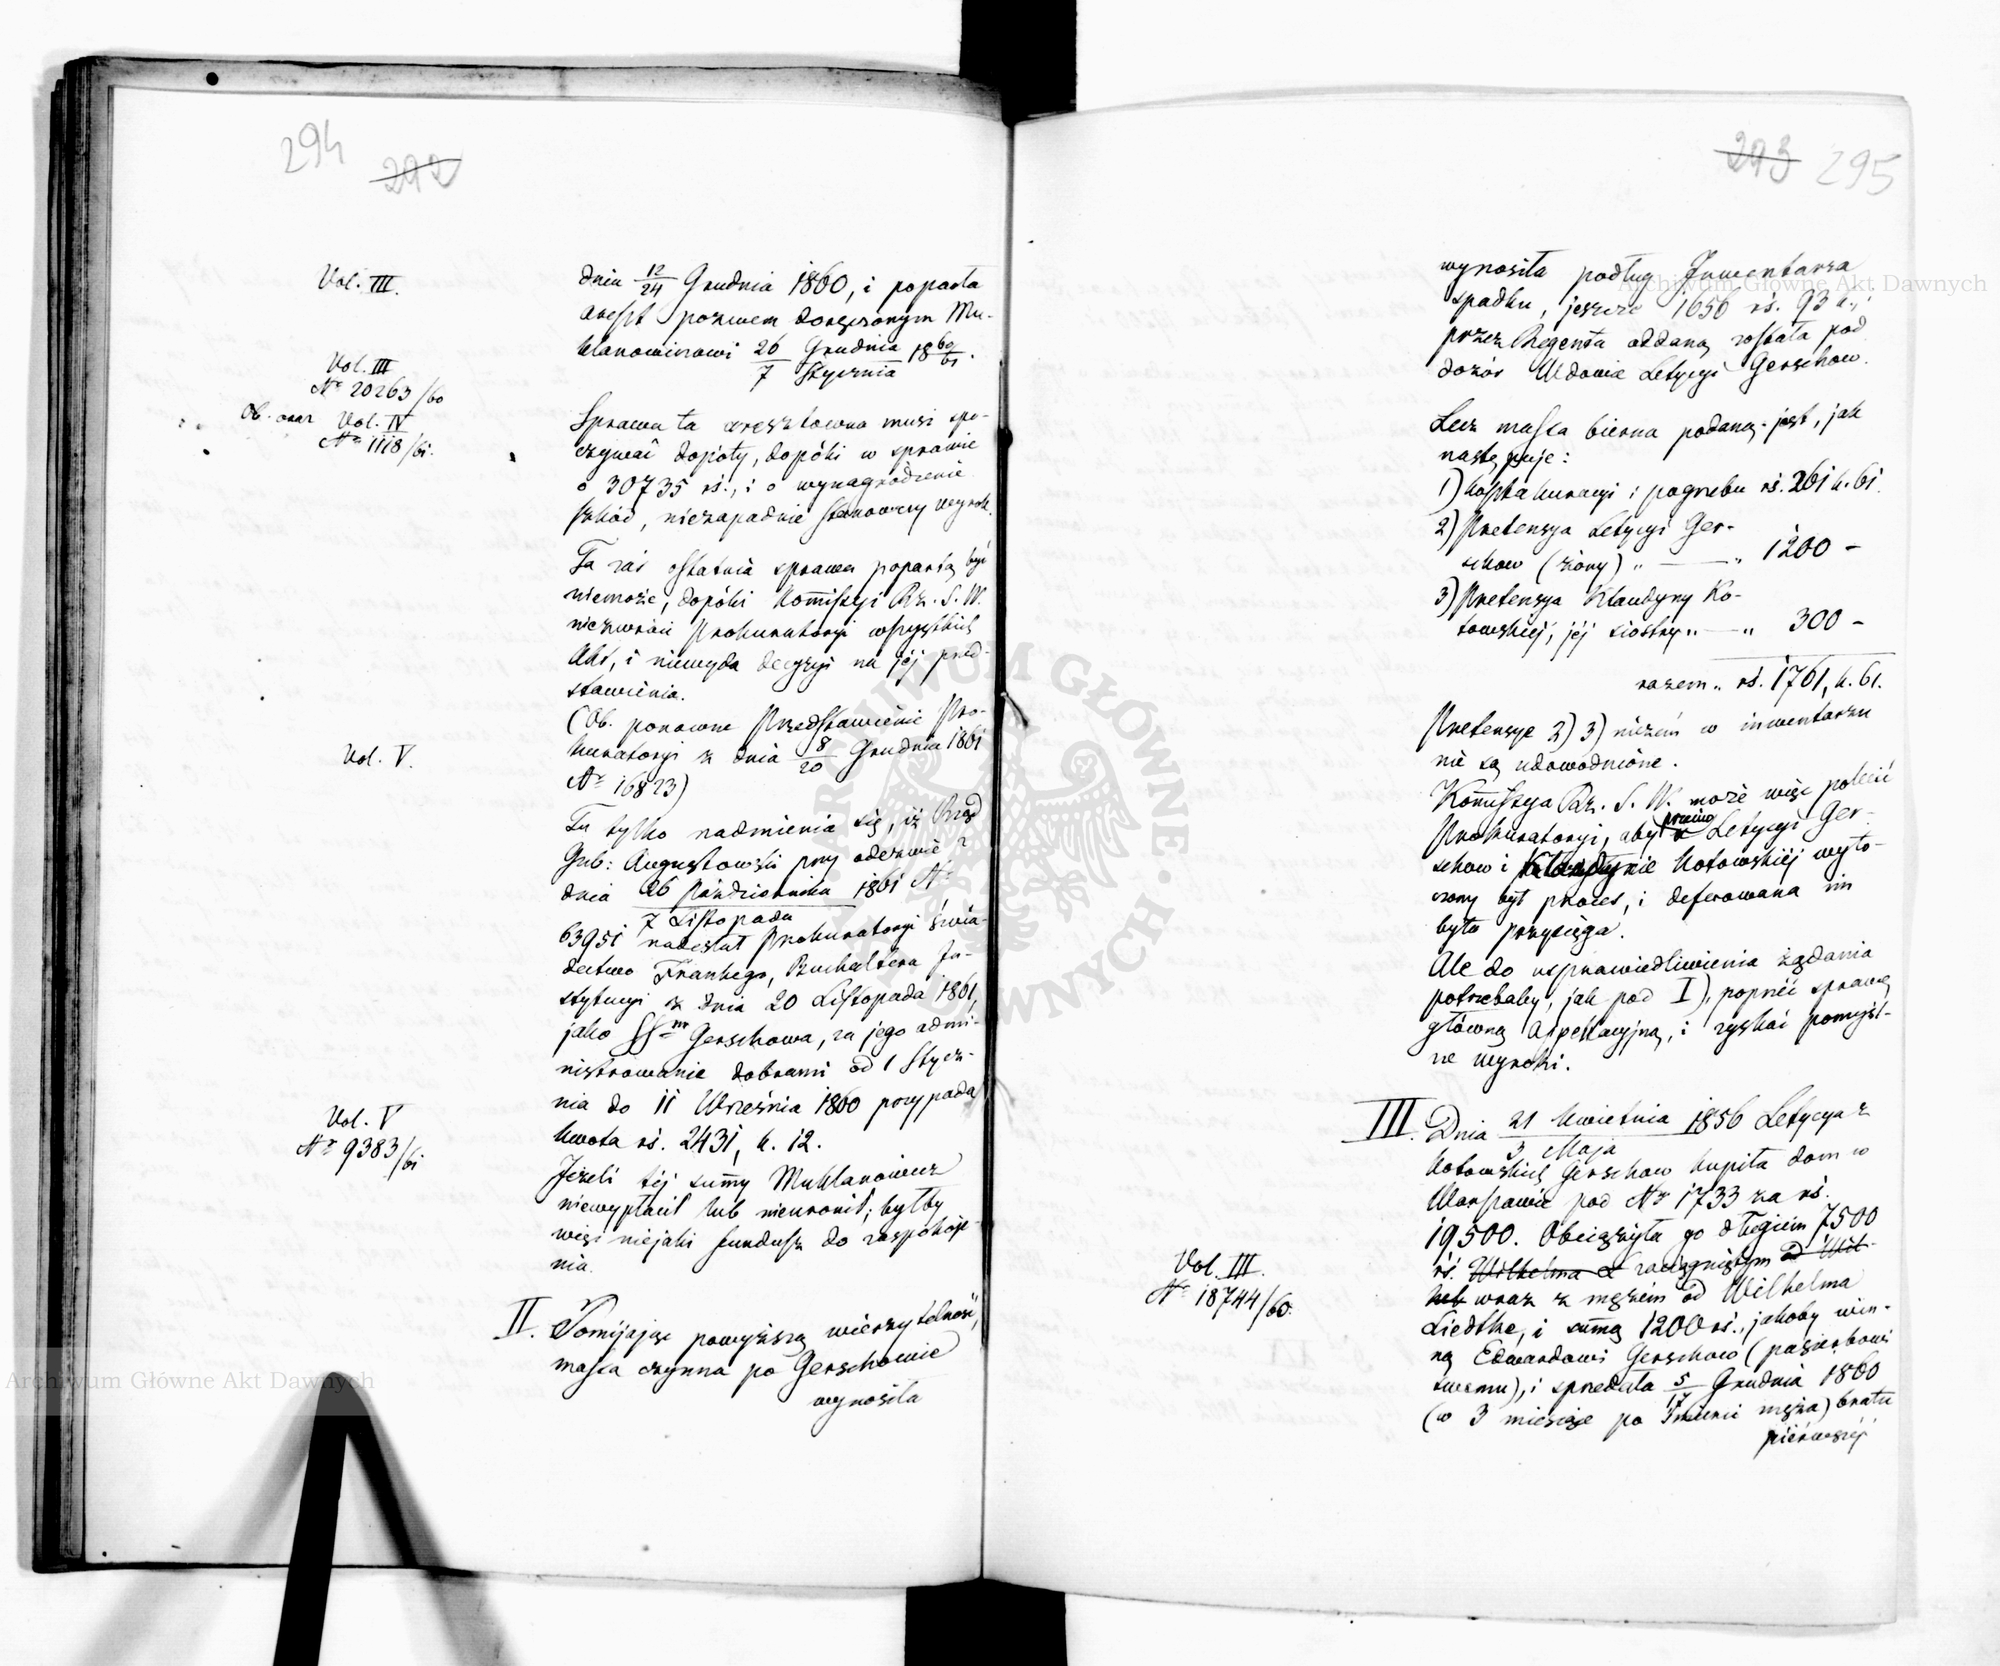 294 292
Vol. III.
dnia 12/24 Grudnia 1860, i poparta
areszt pozwem doręczonym Mu-
klanowiczowi 26 Grudnia 1860/61.
7 Stycznia
Vol. III
Nr 20263/60
Ob. oraz Vol. IV
Nr 1118/61.
Sprawa ta aresztowna musi spo-
czywać dopóty, dopóki w sprawie
o 30735 rś., i o wynagrodzenie
szkód, niezapadnie stanowczy wyrok.
Ta zaś ostatnia sprawa popartą być
niemoże, dopóki Kommissyi Rz. S. W.
niezwróci Prokuratoryi wszystkich
Akt, i niewyda decyzyi na jéj przed-
stawienia.
(Ob. ponowne Przedstawienie Pro-
kuratoryi z dnia 8/20 Grudnia 1861
Nr 16823)
Vol. V.
Tu tylko nadmienia się, iż Rząd
Gub: Augustowski przy odezwie z
dnia 26 Października 1861 Nr
7 Listopada
63951 nadesłał Prokuratoryi świa-
dectwo Frankego, Buchaltera In-
stytucyi z dnia 20 Listopada 1861,
jako SSm Gerschowa, za jego admi-
nistrowanie dobrami od 1 Stycz-
nia do 11 Września 1860 przypada
kwota rś. 2431, k. 12.
Vol. V
Nr 9383/61
Jeżeli téj summy Muklanowicz
niewypłacił lub nieuronił; byłby
więc niejaki fundusz do zaspokoje-
nia.
II. Pomijając powyższą wierzytelność,
massa czynna po Gerschowie
wynosiła
293 295
wynosiła podług Inwentarza
spadku, jeszcze 1656 rś. 93 k., i
przez Regenta oddaną została pod
dozór Wdowie Letycyi Gerschow.
Lecz massa bierna podaną jest, jak
następuje:
1) koszta kuracyi i pogrzebu rś. 261 k. 61.
2) Pretensya Letycyi Ger-
schow (żony) „ — „ 1200 –
3) Pretensya Klaudyny Ko-
towskiéj, jéj siostry „ — „ 300 –
razem „ rś. 1761, k. 61.
Pretensye 2) 3) niczém w inwentarzu
nie są udowodnione.
Kommissya Rz. S. W. może więc polecić
Prokuratoryi, aby przeciw Letycyi Ger-
schow i Klaudynie Kotowskiéj wyto-
czony był proces, i deferowana im
była przysięga.
Ale do usprawiedliwienia żądania
potrzebaby, jak pod I), poprzéć sprawę
główną Appellacyjną, i zyskać pomyśl-
ne wyroki.
III. Dnia 21 Kwietnia 1856 Letycya z
3 Maja
Kotowskich Gerschow kupiła dom w
Warszawie pod Nr 1733 za rś.
19,500. Obciążyła go długiem 7500
rś. Wilhelma L zaciągniętym od Wil-
hel wraz z mężem od Wilhelma
Liedtke, i summą 1200 rś., jakoby win-
ną Edwardowi Gerschow (pasierbowi
swemu), i sprzedała 5/17 Grudnia 1860
(w 3 miesiące po śmierci męża) bratu
pierwszéj
Vol. III.
Nr 18744/60.